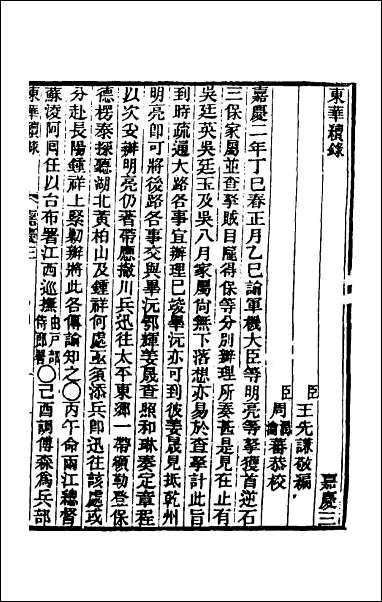 東華續錄
嘉慶三
臣 王先謙敬編
臣 周 蕃恭校
嘉慶二年丁巳春正月乙巳諭軍機大臣等明亮等拏獲首逆石
三保家屬並查拏賊目龐得保等分別辦理所奏甚是見在止有
吳廷英吳廷玉及吳八月家屬尙無下落想亦易於查拏計此旨
到時疏通大路各事宜辦理已竣畢沅亦可到彼姜晟見抵乾州
明亮卽可將後路各事交與畢沅鄂輝姜晟查照和琳奏定章程
以次妥辦明亮仍著帶應撤川兵迅往太平東鄉一帶領勒登保
德楞泰探聽湖北黃柏山及鍾祥何處亟須添兵卽迅往該處或
分赴長陽鍾祥上緊勦辦將此各傳諭知之○丙午命兩江總督
蘇淩阿囘任以台布署江西巡撫由戶部侍郎署○己酉調傅森爲兵部
東華續錄
嘉慶三